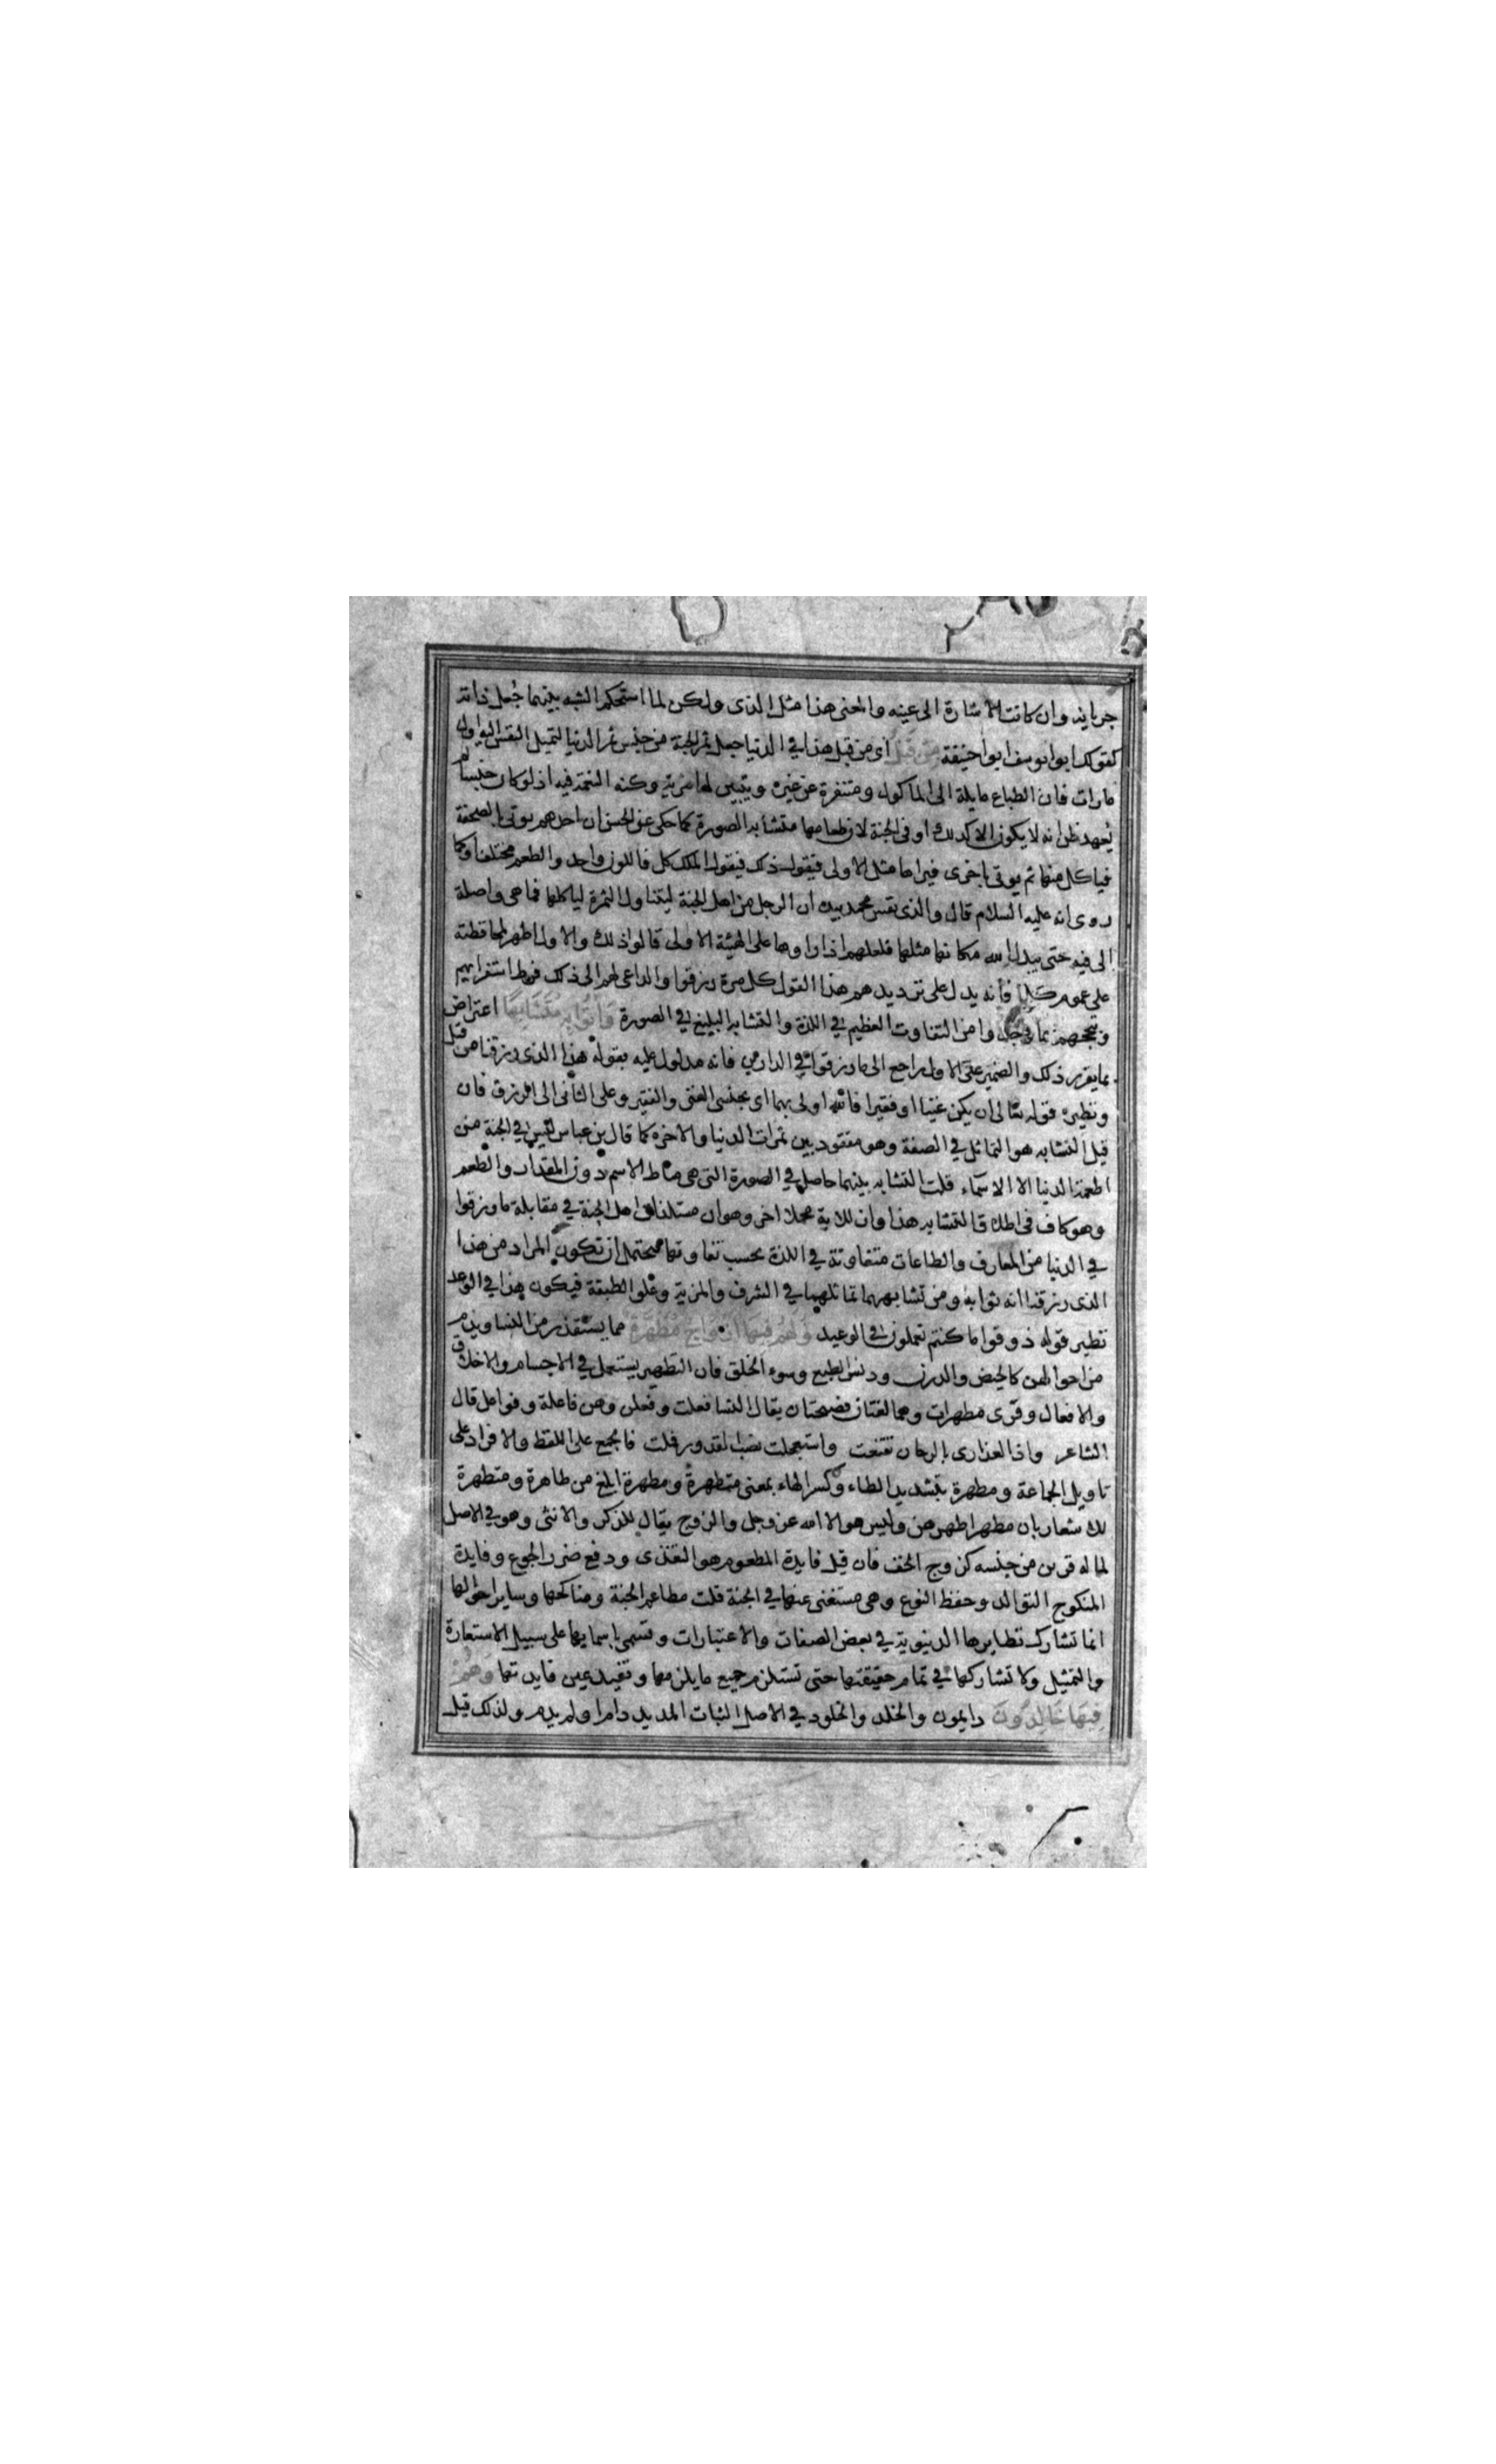 جريانه وان كانت الاشارة الى عينه والمعنى هذا مثل الذى ولكن لما استحكم الشبه بينهما جُعل ذاته
كقولك ابو يوسف ابو احنيفة مِنْ قَبْلُ اى من قبل هذا في الدنيا جعل ثمر الجنة من جنس ثمر الدنيا لتميل النفس اليه اول
مارات فان الطباع مايلة الى الماكول ومتنفرة عن غيره ويتبين لها مزية وكنه النعمة فيه اذ لو كان جنسا لم
يُعهد ظن انه لا يكون الا كذلك او فى الجنة لان طعامها متشابه الصورة كما حكى عن الحسن ان احدهم يوتى بالصحفة
فياكل منها ثم يوتى باخرى فيراها مثل الاولى فيقول ذلك فيقول الملك كل فاللون واحد والطعم مختلف او كما
روى انه عليه السلام قال والذى نفس محمد بيده ان الرجل من اهل الجنة ليتناول الثمرة لياكلها فما هى واصلة
الى فيه حتى يبدل الله مكانها مثلها فلعلهم اذا راوها على الهيئة الاولى قالوا ذلك والاول اظهر لمحافظته
على عموم كلما فانه يدل على ترديدهم هذا القول كل مرة رزقوا والداعى لهم الى ذلك فرط استغرابهم
وتبجحهم بما وجدوا من التفاوت العظيم في اللذة والتشابه البليغ في الصورة وَأُتُوا بِهِ مُتَشَابِهًا اعتراض
بما يقرر ذلك والضمير على الاول راجع الى ما رزقوا في الدارين فانه مدلول عليه بقوله هذا الذى رزقنا من قبل
ونظيره قوله تعالى ان يكن غنيا او فقيرا فالله اولى بهما اى بجنسى الغنى والفقير وعلى الثانى الى الرزق فان
قيل التشابه هو التماثل في الصفة وهو مفقود بين ثمرات الدنيا والاخرة كما قال بن عباس ليس في الجنة من
اطعمة الدنيا الا الاسماء قلت التشابه بينهما حاصل في الصورة التى هى مناط الاسم دون المقدار والطعم
وهو كاف فى اطلاق التشابه هذا وان للاية محملا اخر وهو ان مستلذات اهل الجنة في مقابلة ما رزقوا
في الدنيا من المعارف والطاعات متفاوتة في اللذة بحسب تفاوتها فيحتمل ان تكون المراد من هذا
الذى رزقنا انه ثوابه ومن تشابههما تماثلهما في الشرف والمزية وعلو الطبقة فيكون هذا في الوعد
نظير قوله ذوقوا ما كنتم تعملون فى الوعيد وَلَهُمْ فِيهَا أَزْوَاجٌ مُطَهَّرَةٌ مما يستقذر من النسا ويذم
من احوالهن كالحيض والدرن ودنس الطبع وسوء الخلق فان التطهير يستعمل في الاجسام والاخلاق
والافعال وقرى مطهرات وهما لغتان فصيحتان يقال النسا فعلت وفعلن وهن فاعلة وفواعل قال
الشاعر واذا العذارى بالدخان تقنعت واستعجلت نصب القدور فملت فالجمع على اللفظ والافراد على
تاويل الجماعة ومطهرة بتشديد الطاء وكسر الهاء بمعنى متطهرة ومطهرة ابلغ من طاهرة ومتطهرة
للاشعار بان مطهرا طهرهن وليس هو الا الله عز وجل والزوج يقال للذكر والانثى وهو في الاصل
لما له قرين من جنسه كزوج الخف فان قيل فايدة المطعوم هو التغذى ودفع ضرر الجوع وفايدة
المنكوح التوالد وحفظ النوع وهى مستغنى عنها في الجنة قلت مطاعم الجنة ومناكحها وساير احوالها
انما تشارك نظايرها الدنيوية في بعض الصفات والاعتبارات وتسمى باسمايها على سبيل الاستعارة
والتمثيل ولا تشاركها في تمام حقيقتها حتى تستلزم جميع ما يلزمها وتفيد عين فايدتها وَهُمْ
فِيهَا خَالِدُونَ دايمون والخلد والخلود في الاصل الثبات المديد دام او لم يدم ولذلك قيل